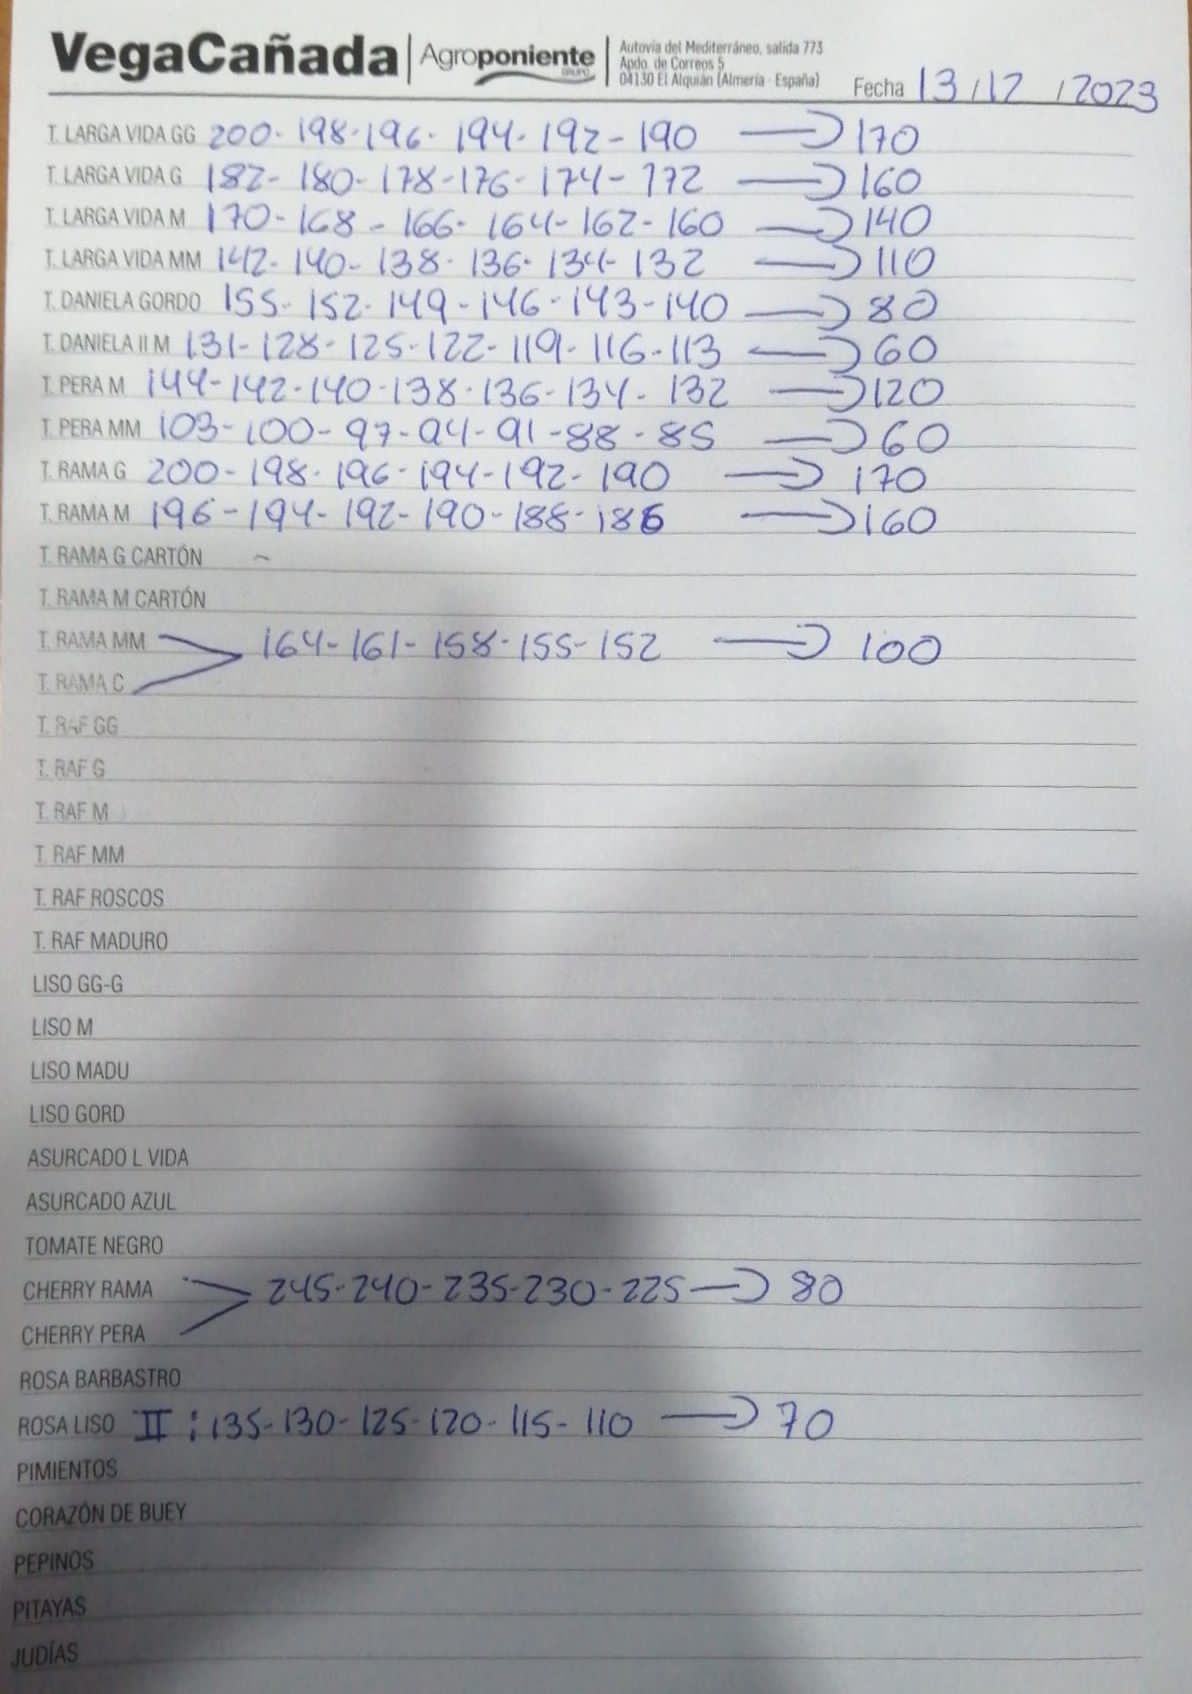 VegaCañada | Agroponiente GRUPO | Autovía del Mediterráneo, salida 773
Apdo. de Correos 5
04130 El Alquián (Almería - España)
Fecha 13/12/2023
T. LARGA VIDA GG 200-198-196-194-192-190 → 170
T. LARGA VIDA G 182-180-178-176-174-172 → 160
T. LARGA VIDA M 170-168-166-164-162-160 → 140
T. LARGA VIDA MM 142-140-138-136-134-132 → 110
T. DANIELA GORDO 155-152-149-146-143-140 → 80
T. DANIELA II M 131-128-125-122-119-116-113 → 60
T. PERA M 144-142-140-138-136-134-132 → 120
T. PERA MM 103-100-97-94-91-88-85 → 60
T. RAMA G 200-198-196-194-192-190 → 170
T. RAMA M 196-194-192-190-188-186 → 160
T. RAMA G CARTÓN -
T. RAMA M CARTÓN
T. RAMA MM 164-161-158-155-152 → 100
T. RAMA C
T. RAF GG
T. RAF G
T. RAF M
T. RAF MM
T. RAF ROSCOS
T. RAF MADURO
LISO GG-G
LISO M
LISO MADU
LISO GORD
ASURCADO L VIDA
ASURCADO AZUL
TOMATE NEGRO
CHERRY RAMA 245-240-235-230-225 → 80
CHERRY PERA
ROSA BARBASTRO
ROSA LISO II : 135-130-125-120-115-110 → 70
PIMIENTOS
CORAZÓN DE BUEY
PEPINOS
PITAYAS
JUDÍAS